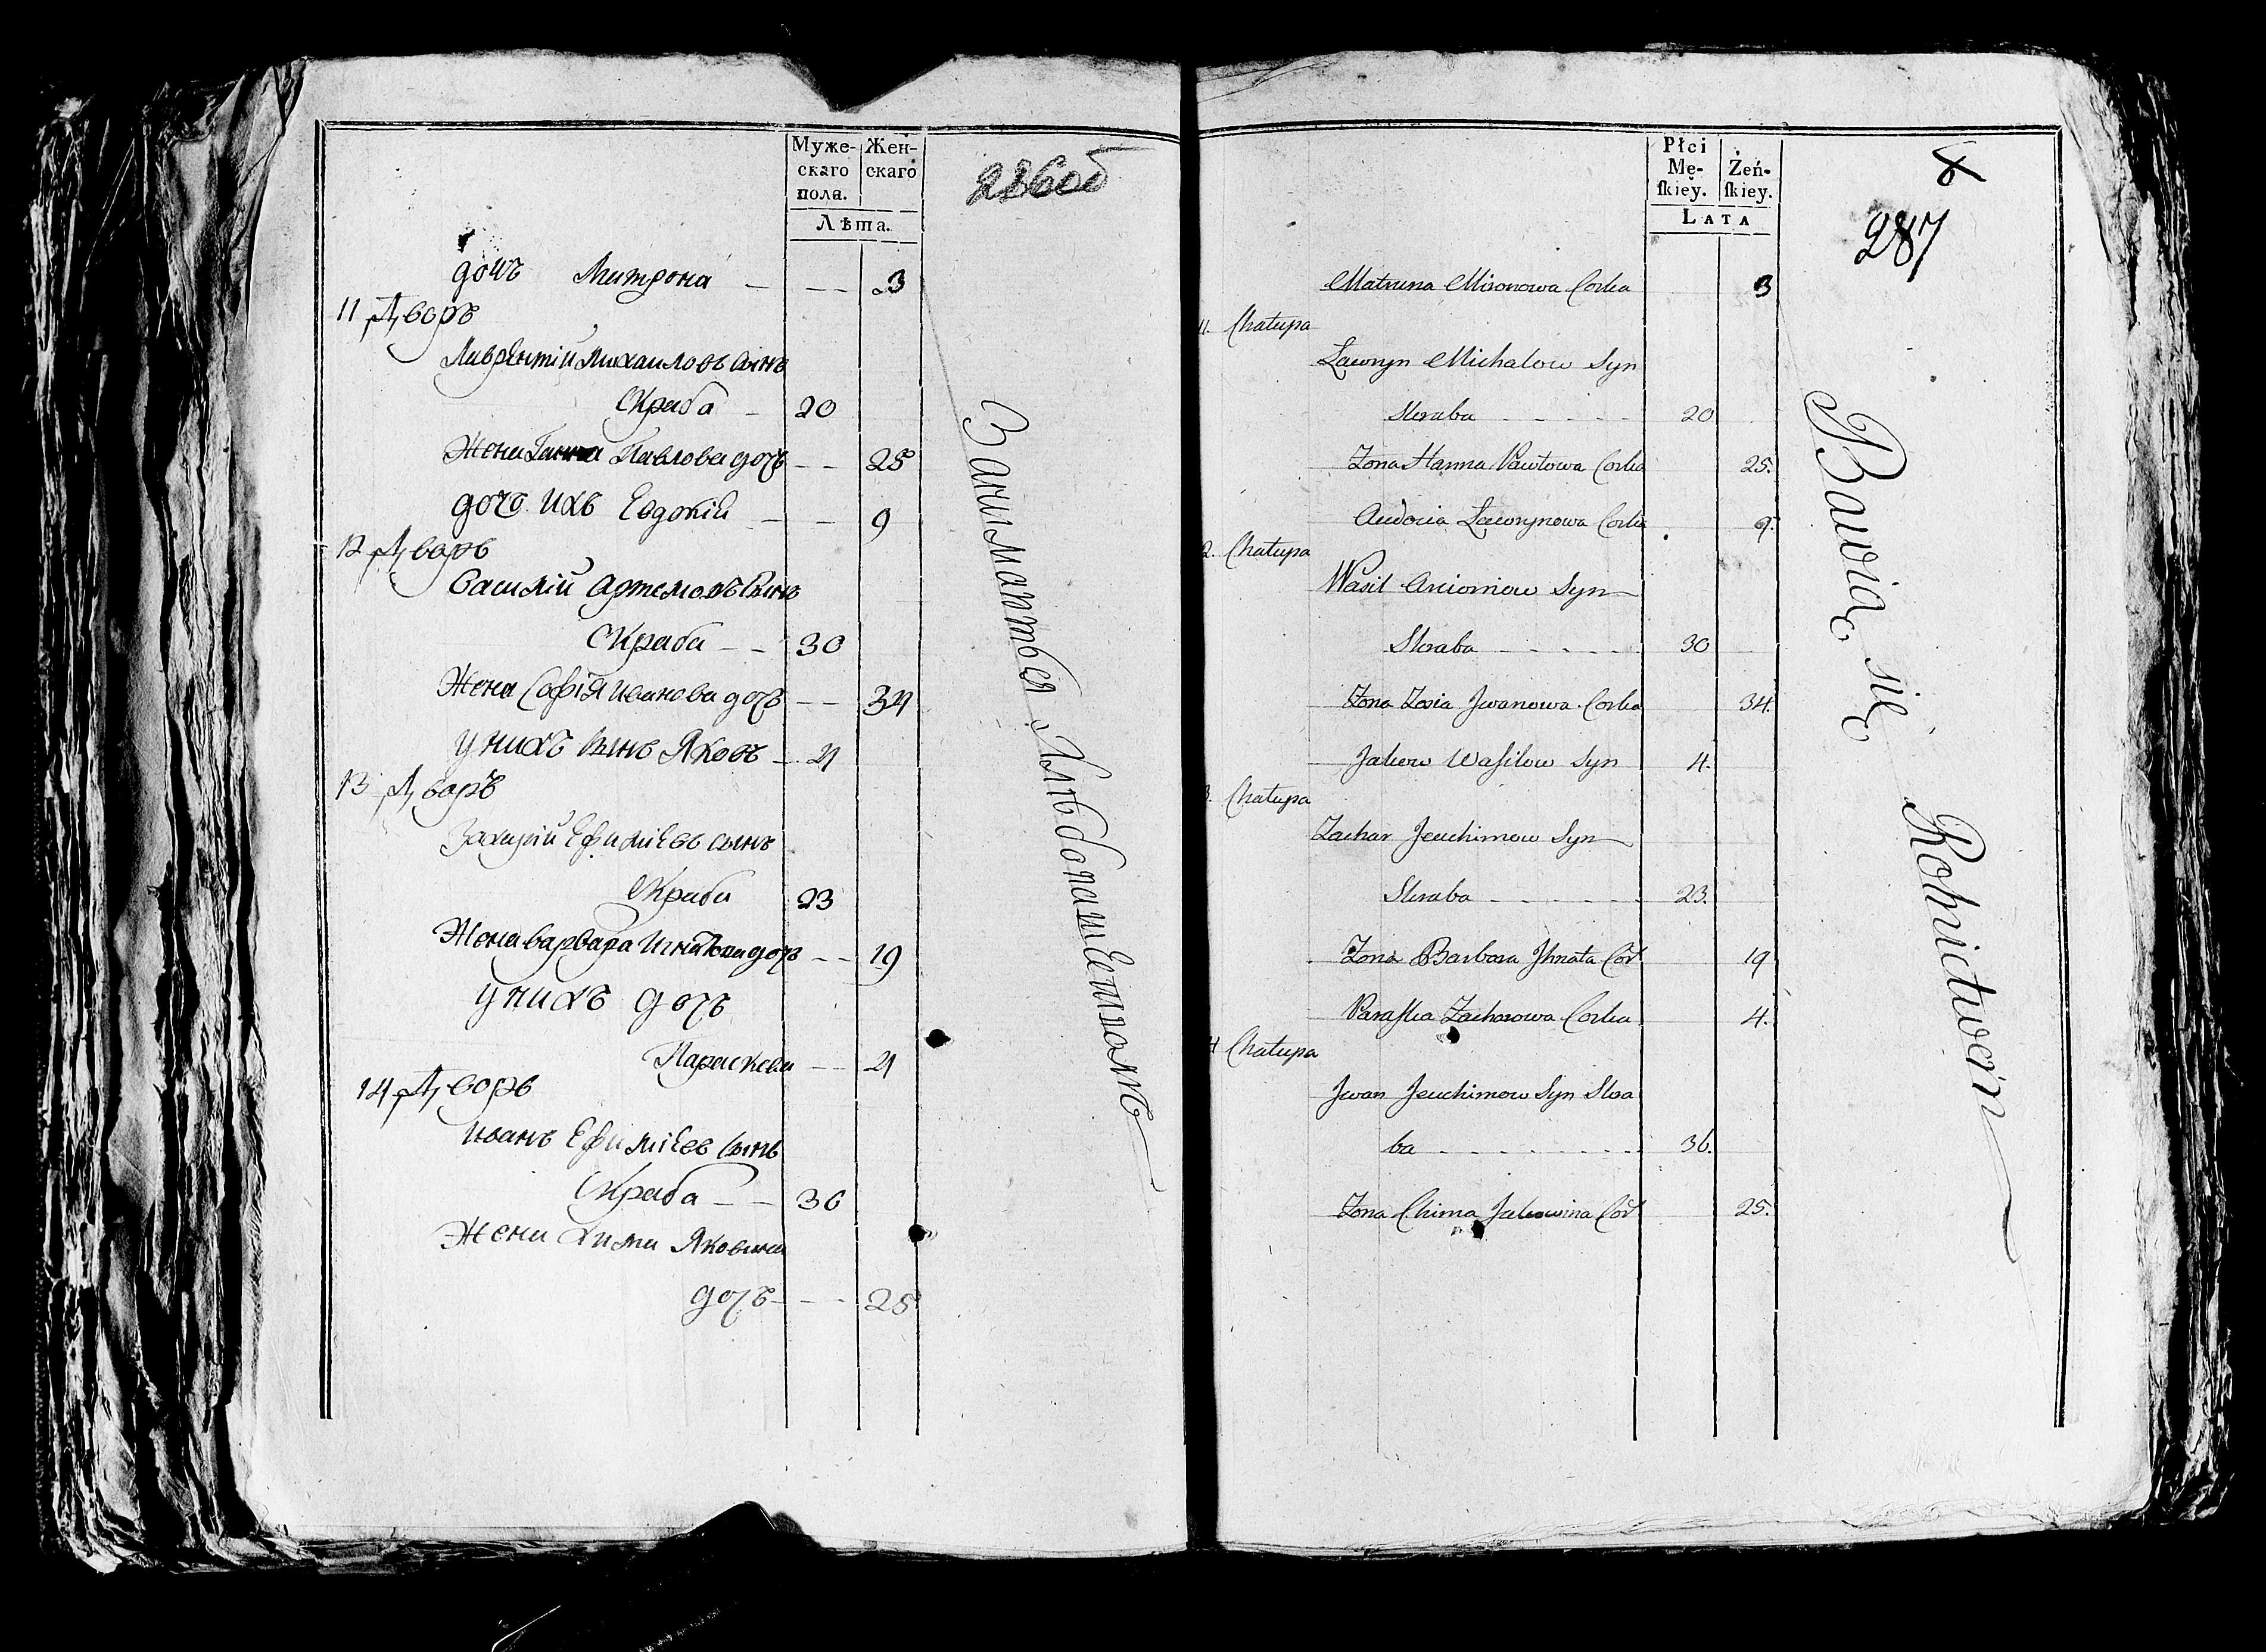 Муже-
скаго
пола.
Жен-
скаго
Лѣта.
286об
дочъ Митрона — — — 3
11 Дворъ
Лаврентій Михаиловъ сынъ
Скраба — 20
Жена Ганна Павлова дочь — — 25
дочь ихъ Евдокіи — — 9
12 Дворъ
Василій Артемовъ сынъ
Скраба — — 30
Жена Софія Иванова дочь — — 34
у нихъ сынъ Яковъ — 4
13 Дворъ
Захарій Ефиміевъ сынъ
Скраба 23
Жена Варвара Игнатова дочь — — 19
у нихъ дочь
Параскева — — 4
14 Дворъ
Иванъ Ефиміевъ сынъ
Скраба — — 36
Жена Хима Яковина
дочь — — — 25
Занимаються Хлѣбопашеством
Płci
Mę-
ſkiey.
Żeń-
ſkiey.
LATA
287
Matruna Mironowa Corka 3
11. Chałupa
Ławryn Michałow Syn
Skraba - - - - - 20
Zona Hanna Pawłowa Corka 25.
Audocia Ławrynowa Corka 9.
2. Chałupa
Wasil Arciomow Syn
Skraba - - - - - 30
Zona Zosia Jwanowa Corka 34.
Jakow Waſilow Syn 4.
3. Chałupa
Zachar Jeuchimow Syn
Skraba - - - - - - 23.
Zona Barbara Jhnata Cor 19
Paraſka Zacharowa Corka 4.
4 Chałupa
Jwan Jeuchimow Syn Skra
ba - - - - - - - - - 36.
Zona Chima Jakowina Cor 25.
Bawią się Rolnictwem